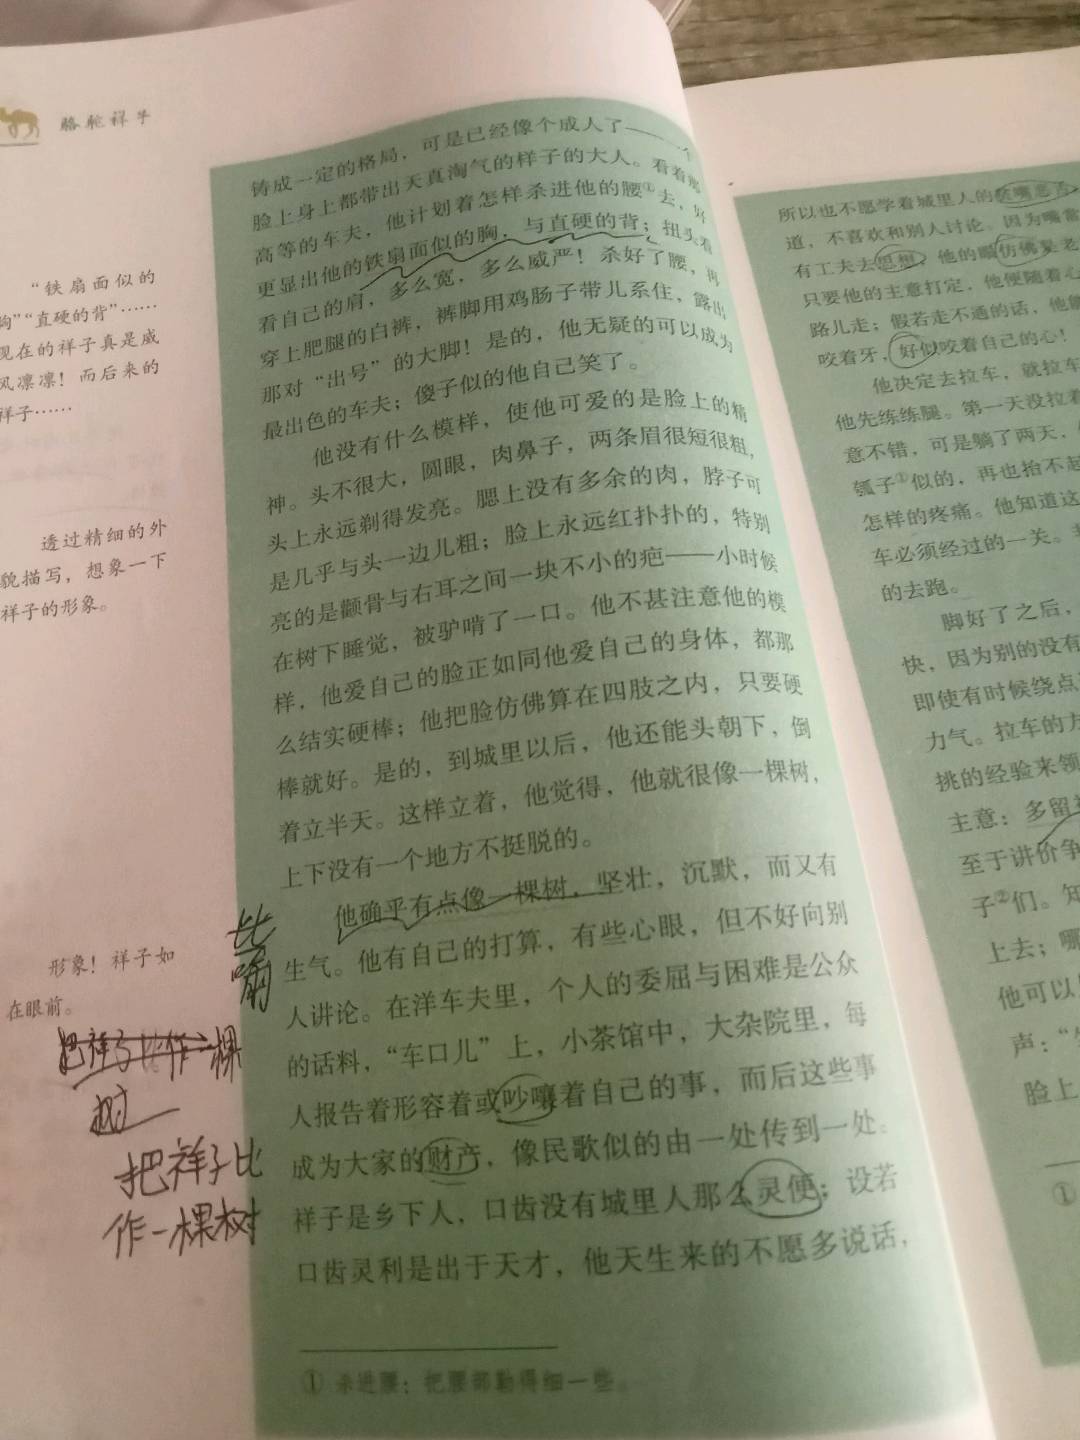 骆驼祥子
铸成一定的格局，可是已经像个成人了——一个
脸上身上都带出天真淘气的样子的大人。看着那
高等的车夫，他计划着怎样杀进他的腰①去，好
更显出他的铁扇面似的胸，与直硬的背；扭头看
看自己的肩，多么宽，多么威严！杀好了腰，再
穿上肥腿的白裤，裤脚用鸡肠子带儿系住，露出
那对“出号”的大脚！是的，他无疑的可以成为
最出色的车夫；傻子似的他自己笑了。
他没有什么模样，使他可爱的是脸上的精
神。头不很大，圆眼，肉鼻子，两条眉很短很粗，
头上永远剃得发亮。腮上没有多余的肉，脖子可
是几乎与头一边儿粗；脸上永远红扑扑的，特别
亮的是颧骨与右耳之间一块不小的疤——小时候
在树下睡觉，被驴啃了一口。他不甚注意他的模
样，他爱自己的脸正如同他爱自己的身体，都那
么结实硬棒；他把脸仿佛算在四肢之内，只要硬
棒就好。是的，到城里以后，他还能头朝下，倒
着立半天。这样立着，他觉得，他就很像一棵树，
上下没有一个地方不挺脱的。
他确乎有点像一棵树，坚壮，沉默，而又有
生气。他有自己的打算，有些心眼，但不好向别
人讲论。在洋车夫里，个人的委屈与困难是公众
的话料，“车口儿”上，小茶馆中，大杂院里，每
人报告着形容着或吵嚷着自己的事，而后这些事
成为大家的财产，像民歌似的由一处传到一处。
祥子是乡下人，口齿没有城里人那么灵便；设若
口齿灵利是出于天才，他天生来的不愿多说话，
① 杀进腰：把腰部勒得细一些。
“铁扇面似的
胸”“直硬的背”……
现在的祥子真是威
风凛凛！而后来的
祥子……
透过精细的外
貌描写，想象一下
祥子的形象。
形象！祥子如
在眼前。
比喻
把祥子比作一棵
树
把祥子比
作一棵树
所以也不愿学着城里人的贫嘴恶舌
道，不喜欢和别人讨论。因为嘴常
有工夫去思想，他的眼仿佛是老
只要他的主意打定，他便随着心
路儿走；假若走不通的话，他能
咬着牙，好似咬着自己的心！
他决定去拉车，就拉车
他先练练腿。第一天没拉着
意不错，可是躺了两天，
瓠子①似的，再也抬不起
怎样的疼痛。他知道这
车必须经过的一关。
的去跑。
脚好了之后，
快，因为别的没有
即使有时候绕点
力气。拉车的方
挑的经验来领
主意：多留
至于讲价争
子②们。知
上去；哪
他可以
声：“
脸上
①